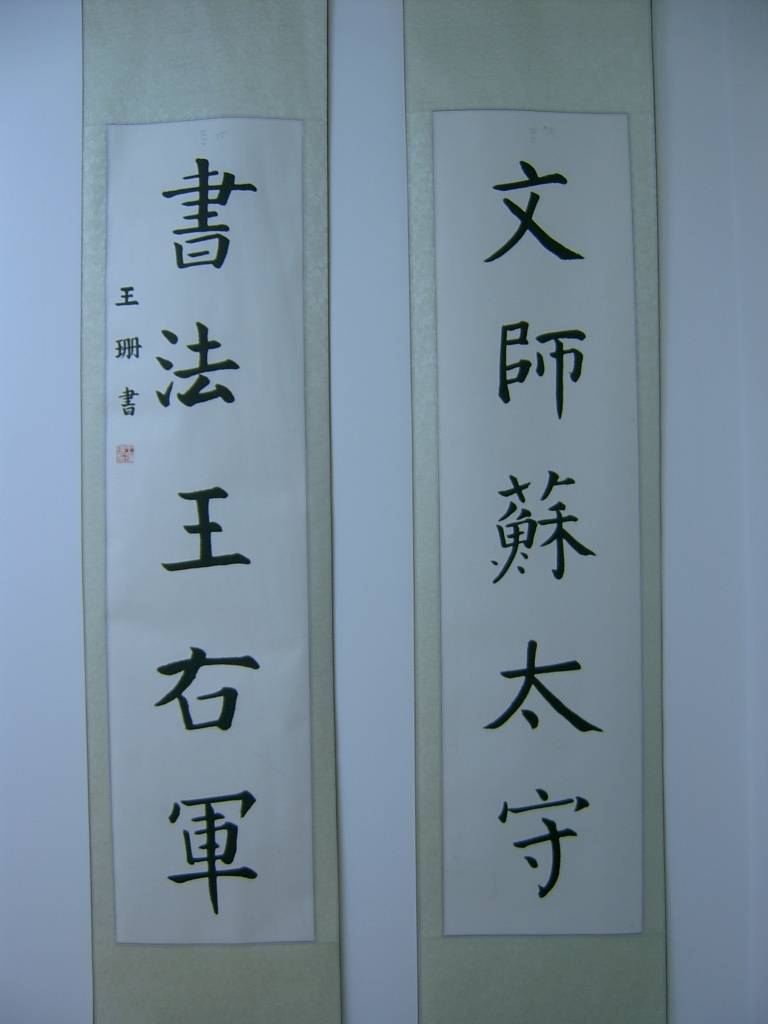 文師蘇太守
書法王右軍
王珊書